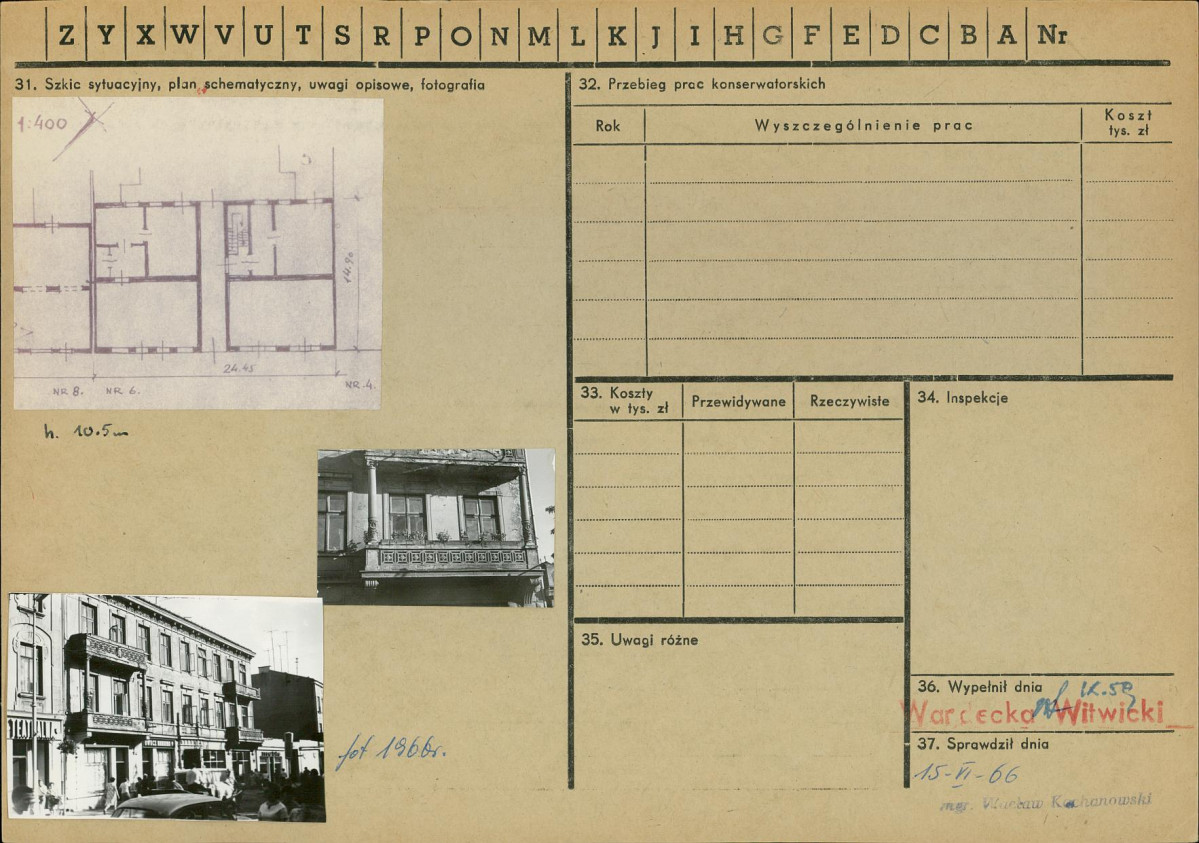 Z Y X W V U T S R P O N M L K J I H G F E D C B A Nr
31. Szkic sytuacyjny, plan schematyczny, uwagi opisowe, fotografia
1:400
14.90
24.45
NR 8. NR 6. NR 4.
h. 10.5m
fot 1966r.
32. Przebieg prac konserwatorskich
Rok
Wyszczególnienie prac
Koszt
tys. zł
33. Koszty
w tys. zł
Przewidywane
Rzeczywiste
34. Inspekcje
35. Uwagi różne
36. Wypełnił dnia
IX.59
Wardecka Witwicki
37. Sprawdził dnia
15-VI-66
mgr. Wacław Kochanowski